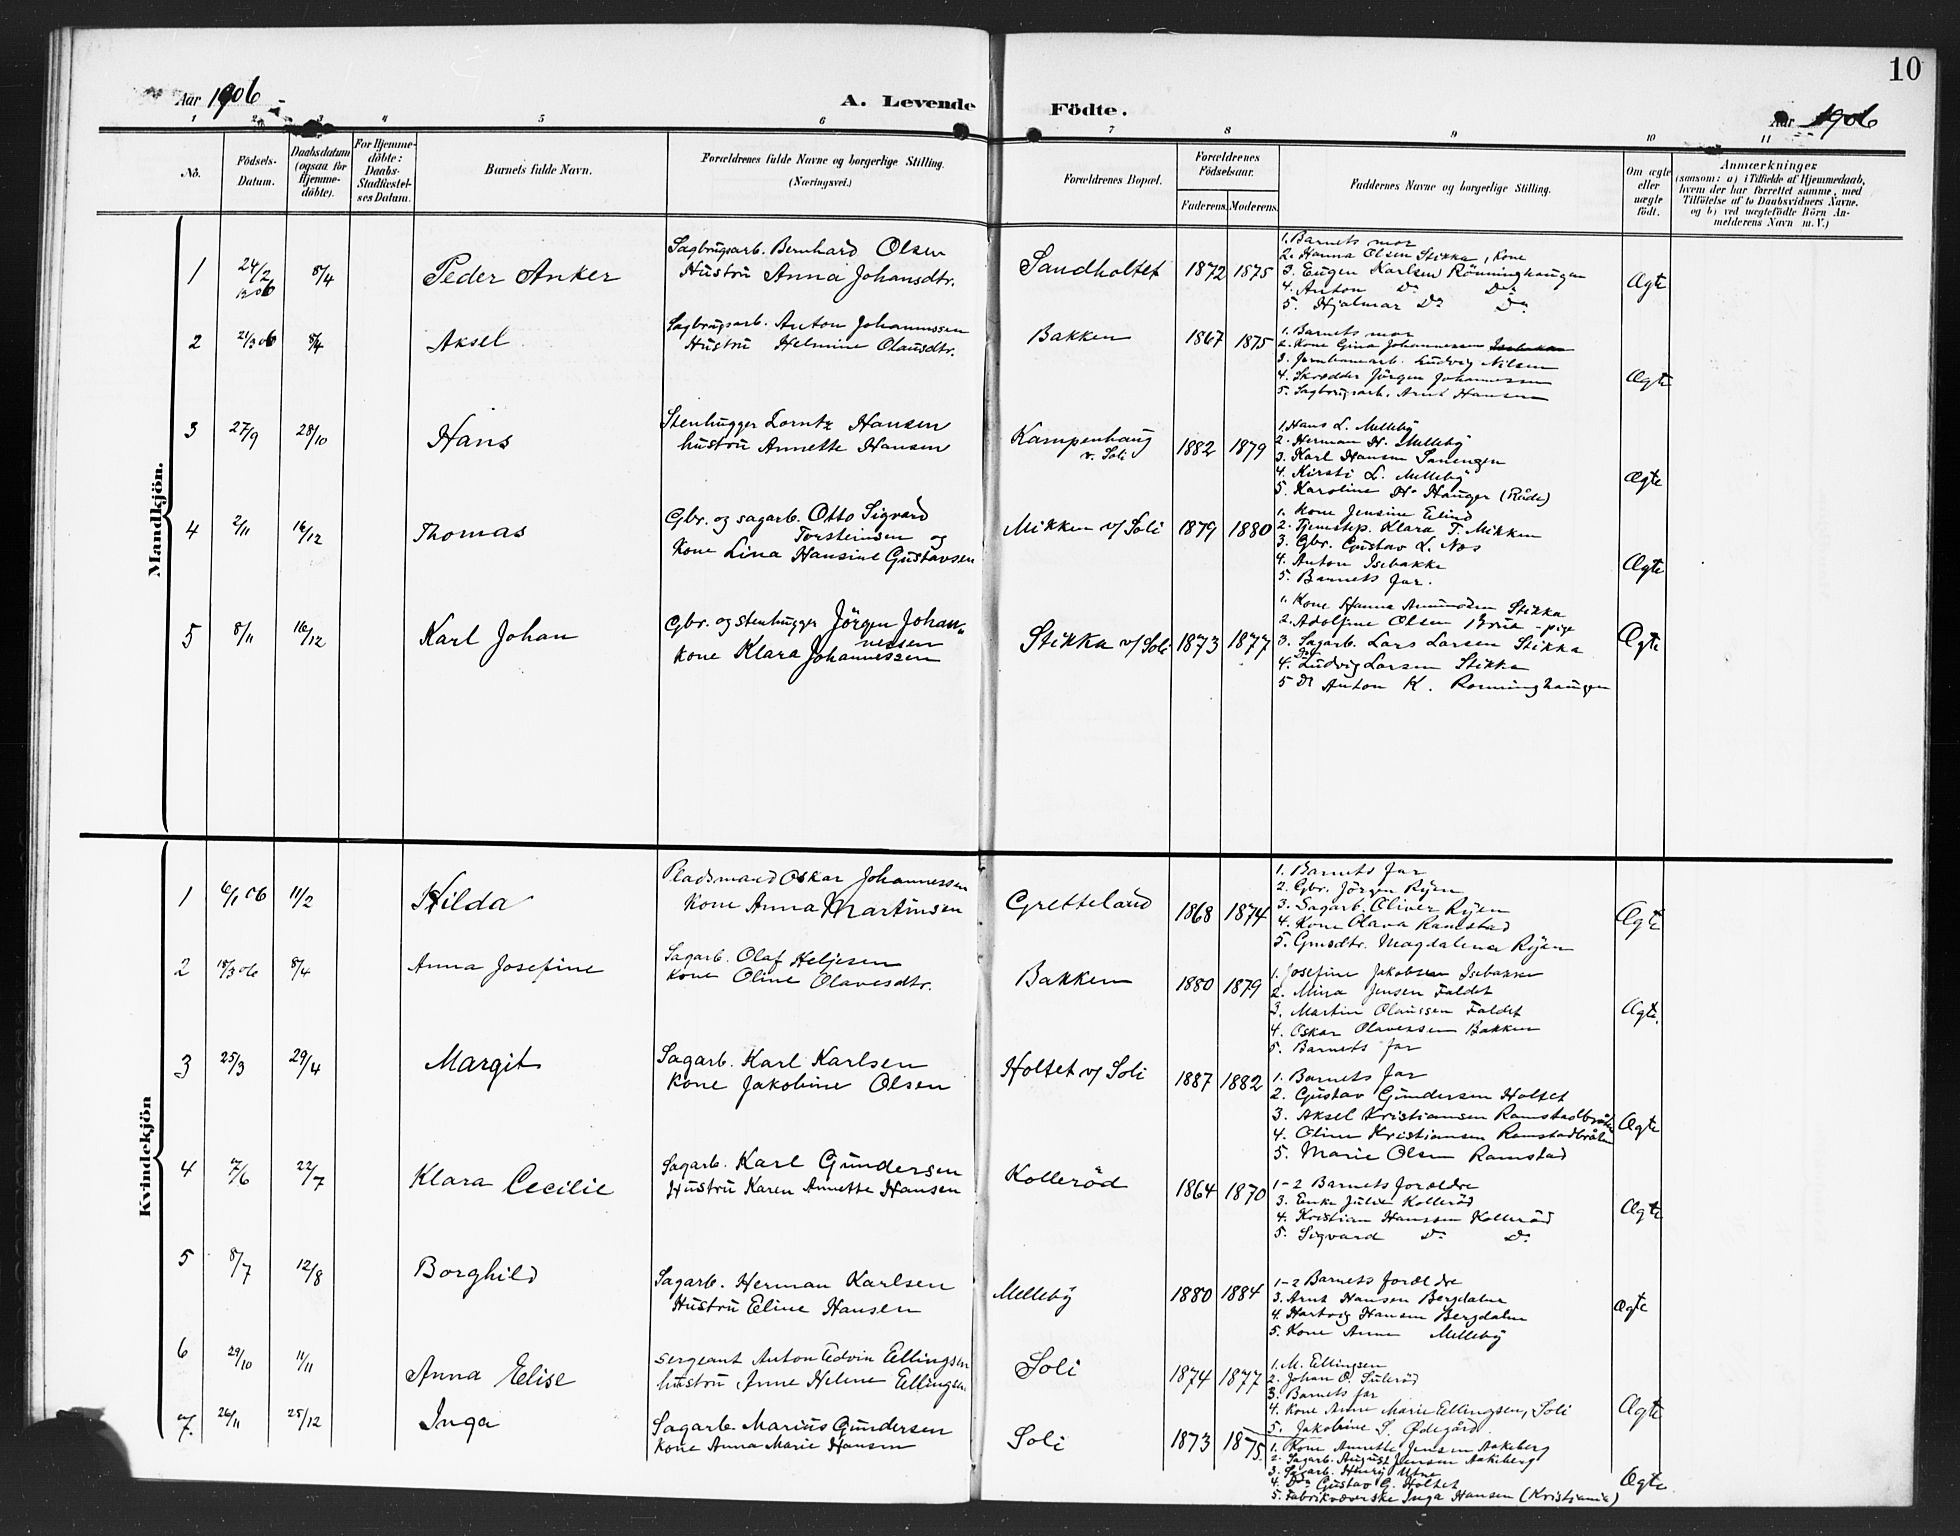 10
Aar 1906
A. Levende Födte.
Aar 1906
1 2 3 4 5 6 7 8 9 10 11
No.
Födsels-Datum.
Daabsdatum (ogsaa for Hjemme-döbte).
For Hjemme-döbte: Daabs-Stadfæstel-ses Datum.
Barnets fulde Navn.
Forældrenes fulde Navne og borgerlige Stilling.
(Næringsvei.)
Forældrenes Bopæl.
Forældrenes Födselsaar.
Faderens. Moderens.
Faddernes Navne og borgerlige Stilling.
Om ægte eller uægte födt.
Anmærkninger
(saasom: a) i Tilfælde af Hjemmedaab,
hvem der har forrettet samme, med
Tilföielse af to Daabsvidners Navne.
og b) ved uægtefödte Börn An-
melderens Navn m. V.)
Mandkjön.
1 24/2 1906 8/4 Peder Anker
Sagbrugsarb. Bernhard Olsen
Hustru Anna Johansdtr.
Sandholtet 1872 1875
1. Barnets mor
2. Hanna Olsen Stikka, Kone
3. Eugen Karlsen Rönninghaugen
4. Anton Do Do
5. Hjalmar Do Do
Ægte
2 21/3 06 8/4 Aksel
Sagbrugsarb. Anton Johannssen
Hustru Helmine Olausdtr.
Bakken 1867 1875
1. Barnets mor
2. Kone Gina Johannessen Isebakke
3. Jernbanearb. Ludvig Nilsen
4. Skrædder Jörgen Johannessen
5. Sagbrugsarb. Arnt Hansen
Ægte
3 27/9 28/10 Hans
Stenhugger Lorntz Hansen
hustru Annette Hansen
Kampenhaug
v. Soli
1882 1879
1. Hans L. Melleby
2. Herman H. Melleby
3. Karl Hansen Sanengen
4. Kirsti L. Melleby
5. Karoline H. Hauger (Råde)
Ægte
4 2/11 16/12 Thomas
Gbr. og sagarb. Otto Sigvard
Torsteinsen og
Kone Lina Hansine Gustavsen
Mikken v/ Soli 1879 1880
1. Kone Jensine Elind
2. Tjenestep. Klara T. Mikken
3. Gbr. Gustav L. Næs
4. Anton Isebakke
5. Barnets far.
Ægte
5 8/11 16/12 Karl Johan
Gbr. og stenhugger Jörgen Johan-
nessen
Kone Klara Johannessen
Stikka v/ Soli 1873 1877
1. Kone Hanna Amundsen Stikka
2. Adolfine Olsen Brue - pige
3. Sagarb. Lars Larsen Stikka
4. Do Ludvig Larsen Stikka
5 Do Anton K. Ronninghaugen
Ægte
Kvindekjön
1 6/1 06 11/2 Hilda
Pladsmand Oskar Johannessen
Kone Anna Martinsen
Gretteland 1868 1874
1. Barnets far
2. Gbr. Jörgen Ryen
3. Sagarb. Oliver Ryen
4. Kone Olava Ramstad
5. Gmsdtr. Magdalena Ryen
Ægte
2 18/3 06 8/4 Anna Josefine
Sagarb. Olaf Heljesen
Kone Oline Olavesdtr.
Bakken 1880 1879
1. Josefine Jakobsen Isebakke
2. Mina Jensen Faldet
3. Martin Olaussen Faldet
4. Oskar Olavessen Bakken
5. Barnets far
Ægte.
3 25/3 29/4 Margit
Sagarb. Karl Karlsen
Kone Jakobine Olsen
Holtet v/ Soli 1887 1882
1. Barnets far
2. Gustav Gundersen Holtet
3. Aksel Kristiansen Ramstadbråten
4. Oline Kristiansen Ramstadbråten
5. Marie Olsen Ramstad
Ægte
4 7/6 22/7 Klara Cecilie
Sagarb. Karl Gundersen
Hustru Karen Annette Hansen
Kolleröd 1864 1870
1-2 Barnets forældre
3. Enke Julie Kolleröd
4. Kristian Hanssen Kolleröd
5. Sigvard Do Do
Ægte
5 8/7 12/8 Borghild
Sagarb. Herman Karlsen
Hustru Eline Hansen
Melleby 1880 1884
1-2 Barnets forældre
3. Arnt Hansen Bergdalen
4. Hartvig Hansen Bergdalen
5. Kone Anne Melleby
Ægte
6 29/10 11/11 Anna Elise
Sergeant Anton Edvin Ellingsen
hustru Anne Helene Ellingsen
Soli 1874 1877
1. M. Ellingsen
2. Johan O. Suleröd
3. Barnets far
4. Kone Anne Marie Ellingsen, Soli
5. Jakobine S. Ødegård.
Ægte
7. 26/11 25/12 Inga
Sagarb. Marius Gundersen
Kone Anna Marie Hansen
Soli 1873 1875.
1. Kone Annette Jensen Aakeberg
2. Sagarb. August Jensen Aakeberg
3. Sagarb. Henry Utne
4. Do Gustav G. Holtet
5. Fabrikvæverske Inga Hansen (Kristiania)
Ægte.